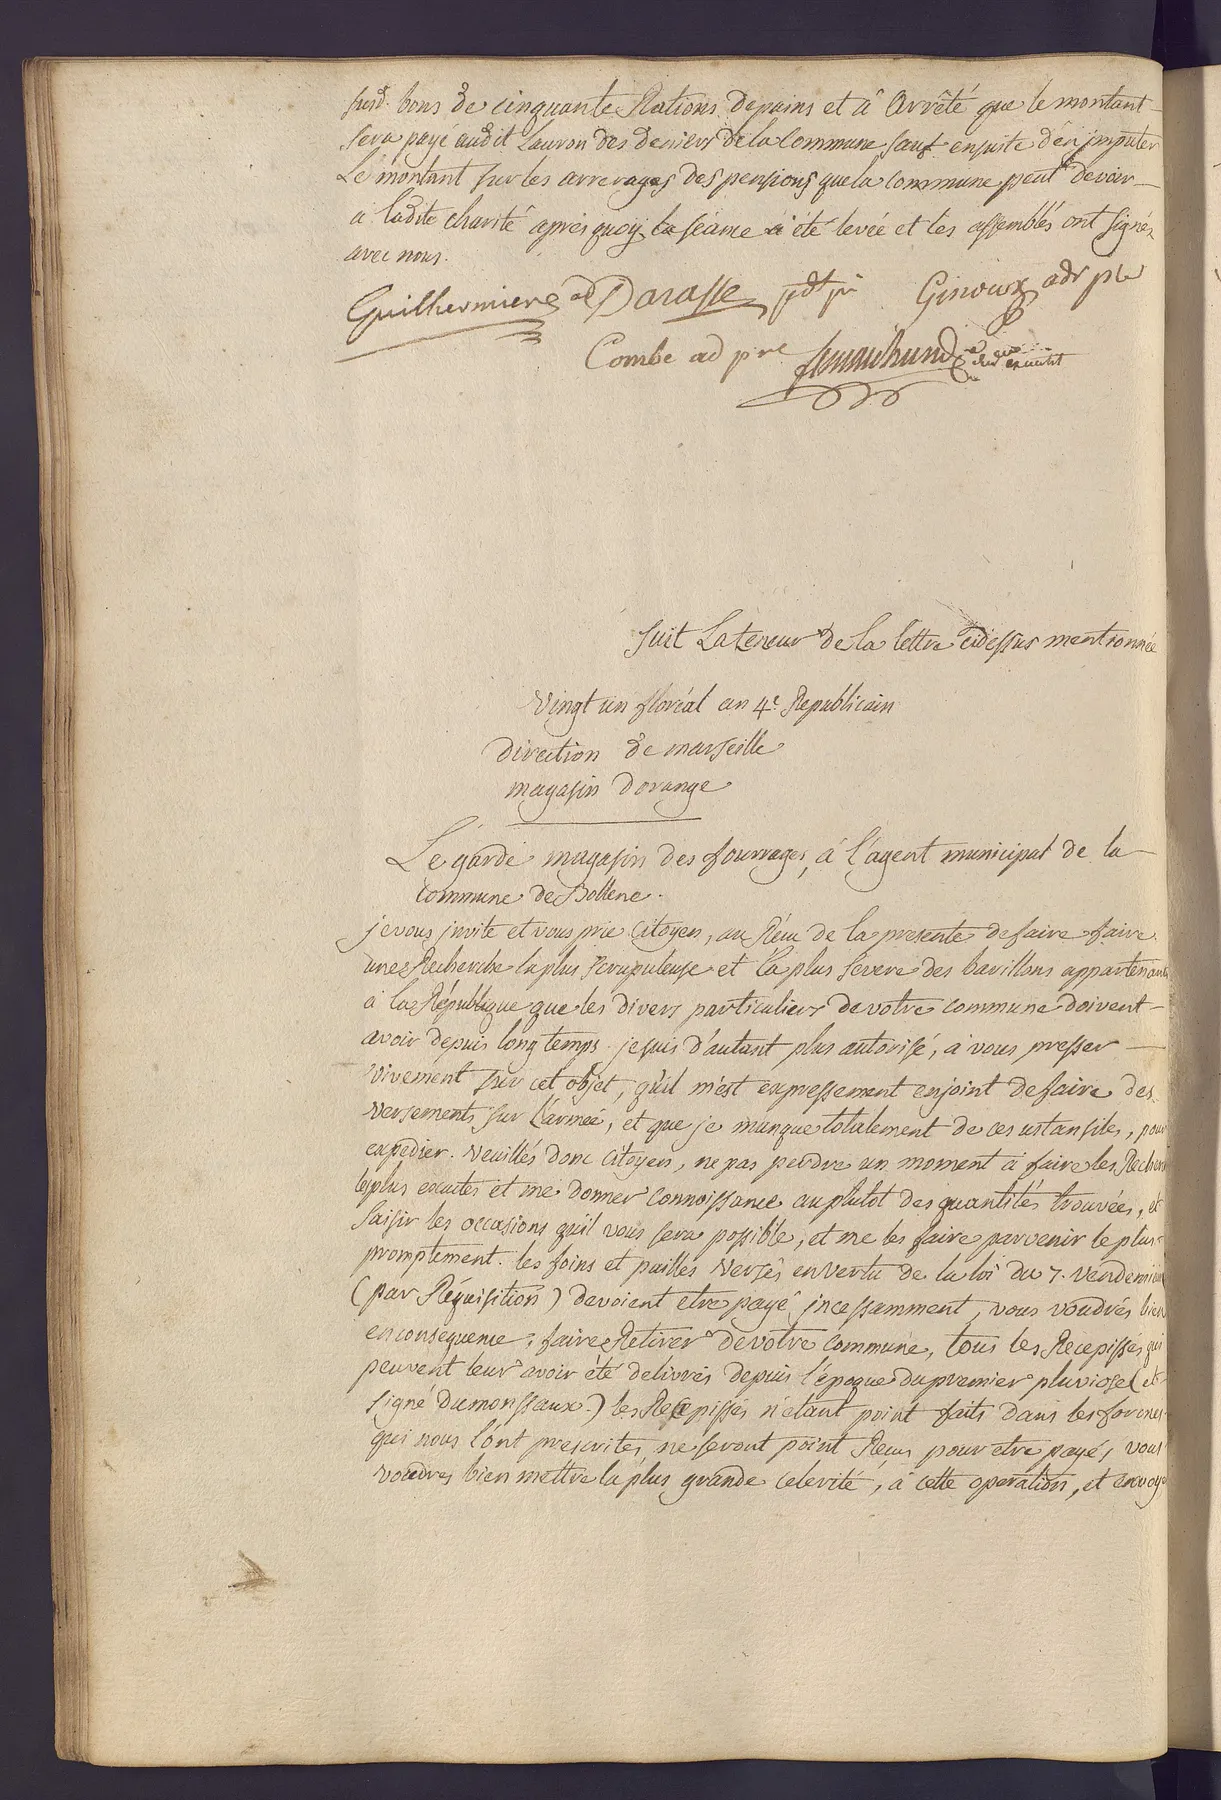 susd. bons de cinquante Rations de pains et â Arrêté que le montant
sera payé audit Lauron des deniers de la Commune sauf ensuite d'en imputer
Le montant sur les arrerages des pensions que la Commune peut devoir
a ladite charité après quoy la séance a été levée et les assemblés ont signés
avec nous.
Guilhermier ad Darasse pdt Ginoux adt
Combe ad
Suit La teneur de la lettre cidessus mentionnée
Vingt un floréal an 4e. Republicain
direction de marseille
magasin Dorange
Le garde magasin des fourrages, á l'agent municipal de la
Commune de Bollene.
je vous jnvite et vous prie Citoyen, au Réçu de la presente de faire faire
une Recherche la plus scrupuleuse et la plus severe des barillons appartenants
á la République que les divers particuliers de votre commune doivent
avoir depuis long temps. je suis d'autant plus autorisé, a vous presser
vivement sur cet objet, qu'il m'est expressement enjoint de faire des
versements sur l'armée, et que je manque totalement de ces ustansiles, pour
expedier. veuillés donc citoyen, ne pas perdre un moment á faire les Recher
les plus exactes et me donner connoissance au plutot des quantités trouvées, et
saisir les occasions qu'il vous sera possible, et me les faire parvenir le plus
promptement. les foins et pailles versés en vertu de la loi du 7. vendemiaire
(par Réquisition) devoient etre payé jncessamment, vous voudrés bien
en consequence, faire Retirer de votre commune, tous les Recepissés qui
peuvent leur avoir été delivrés depuis l'époque du premier pluviose (et
signé Dumonsseaux.) les Recepissés n'etant point faits dans les formes
qui nous l'ont prescrites, ne seront point Reçus pour etre payés, vous
voudres bien mettre la plus grande celerité, á cette operation, et envoye